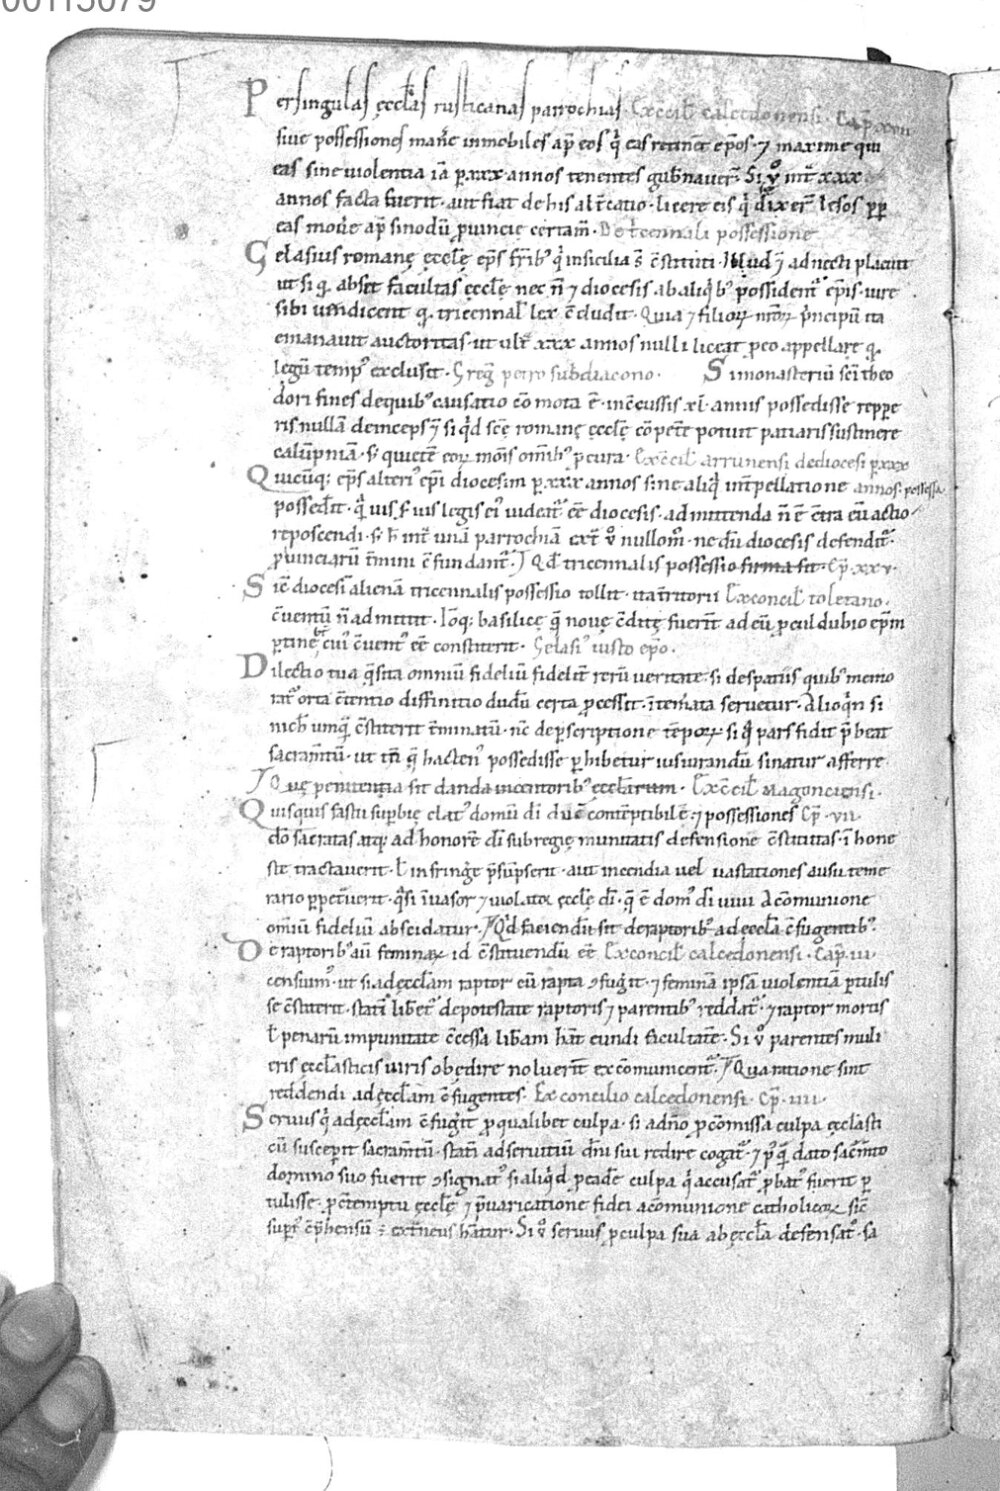 00113079
Per singulas ęccłas rusticanas parrochias. Ex cc̄cil calcedonensi. Cap̄ xvii
siue possessiones man̄e inmobiles ap̄ eos q̇ eas retinēt ep̄os. ⁊ maxime qui
eas sine uiolentia iā p̱ xxx annos tenentes gub̄nauer̄. Si ů int̄ xxx
annos facta fuerit. aut fiat de his alt̄catio. licere eis q̇ dixer̄ lesos p̱p̱
eas mou̇e ap̄ sinodū p̱uincię certam̄. De t̄cennali possessione
Gelasius romanę ęcclę̄ ep̄s fr̄ibꝰ q̇ in sicilia s̄t c̄stituti. Illud ⁊ adnecti placuit
ut si q̣ absit facultas ęcclę̄ nec n̄ ⁊ diocesis ab aliq̇bꝰ possident̄ ep̄is. iure
sibi uendicent q̣ tricennal lex c̄cludit. Quia ⁊ filioꝝ nr̄oꝝ p̄ncipū ita
emanauit auctoritas. ut ult̄ xxx annos nulli liceat p̱ eo appellare q̣
legū tempꝰ exclusit. Greg̅ petro subdiacono. Si monasteriū sc̄i theo
dori fines de quibꝰ causatio cōmota ē. inc̄cussis xl. annis possedisse reppe
ris nullā deinceps ⁊ si q̇d scę̄ romanę ęcclę̄ cōpet̄e potuit patiaris sustinere
calūpniā. s; quietē eoꝝ mōis om̄ibꝰ p̱cura. Ex c̄cil arrunensi de diocesi p̱ xxx
Quicūq; ep̄s alteriꝰ ep̄i diocesim p̱ xxx annos sine aliq̇ int̄pellatione annos. possessa
possed̄it. q̇uis s̄ ius legis eiꝰ uideat̄ ēe diocesis. admittenda n̄ ē c̄tra eū actio
reposcendi. s; h̄ int̄ unā parrochiā ext̄ ů nullom̊. ne dū diocesis defendit̄
p̱uinciarū t̄mini c̄fundant̄. Qd tricennalis possessio firma sit. Cp̄. xxv.
Sic̄ diocesī alienā tricennalis possessio tollit. ita t̄ritorii Ex concil toletano.
c̄uentū n̄ admittit. Iōq; basilicę q̣ nouę c̄ditę fuerīt ad eū p̱cul dubio ep̄m
p̱tinēbt cuiꝰ c̄uentꝰ ēē constiterit. Gelasiꝰ iusto epō.
Dilectio tua q̄sita omniū fideliū fidelit̄ rerū ueritate. si despatiis quibꝰ memo
rat̄ orta c̄tentio diffinitio dudū certa p̱cessit. ītem̄ata seruetur. Alioq̇n si
nichil umq̄ c̄stiterit t̄minatū. nc̄ dep̱scriptione tēpoꝝ. si q̄ pars fidit p̄beat
sacram̄tū. ut tn̄ q̄ hactenꝰ possedisse p̱hibetur iusiurandū sinatur afferre
Que penitentia sit danda incentoribꝰ ęccłarum. Ex c̄cil Magonciensi.
Quisquis fastu sup̱bię elatꝰ domū dī duc̄ contēptibilē ⁊ possessiones Cp̄. vii.
dō sacratas atq; ad honorē dī sub regię munitatis defensione c̄stitutas. īhone
ste tractauerit. ł infring̅e p̄sūpserit. aut incendia uel uastationes ausu teme
rario p̱pet̄uerit. q̇si īuasor ⁊ uiolator ęcclę̄ dī. q̣ ē domꝰ dī uiui a cōmunione
omniū fideliū abscidatur. Qd faciendū sit de raptoribꝰ ad ęccła c̄fugentibꝰ.
De raptoribꝰ aū feminaꝝ id c̄stituendū ēē Ex concil calcedonensi. Cap̄. iii.
censuimꝰ. ut si ad ęccłam raptor cū rapta ɔfuġit. ⁊ feminā ipsā uiolentiā p̱tulis
se c̄stiterit. stati libet̄ de potestate raptoris ⁊ parentibꝰ reddat̄. ⁊ raptor mortis
ł penarū impunitate c̄cessa lib̄am hāt eundi facultatē. Si ů parentes muli
eris ęccłasticis uiris obędire noluerīt excōmunicent̄. Qua ratione sint
reddendi ad ęccłam c̄fugentes. Ex concilio calcedonensi. Cp̄. iiii.
Seruus q̇ ad ęccłam c̄fuġit p̱ qualibet culpa. si a dn̄o p̱ cōmissa culpa ęccłasti
cū susceperit sacram̄tū. stati ad seruitiū dn̄i sui redire cogat̄. ⁊ pꝰq̄ dato sacm̄to
domino suo fuerit ɔsignatꝰ si aliq̇d p̱ eadē culpa q̇ accusat̄ p̱batꝰ fuerit p̱
tulisse. p̱ c̄temptu ęcclę̄ ⁊ p̄uaricatione fidei a cōmunione catholicoꝝ sic̄
supi̇ c̄p̄hensū ē extn̄eus hatur. Si ů seruus p̱ culpa sua ab ęccła defensat̄. sa